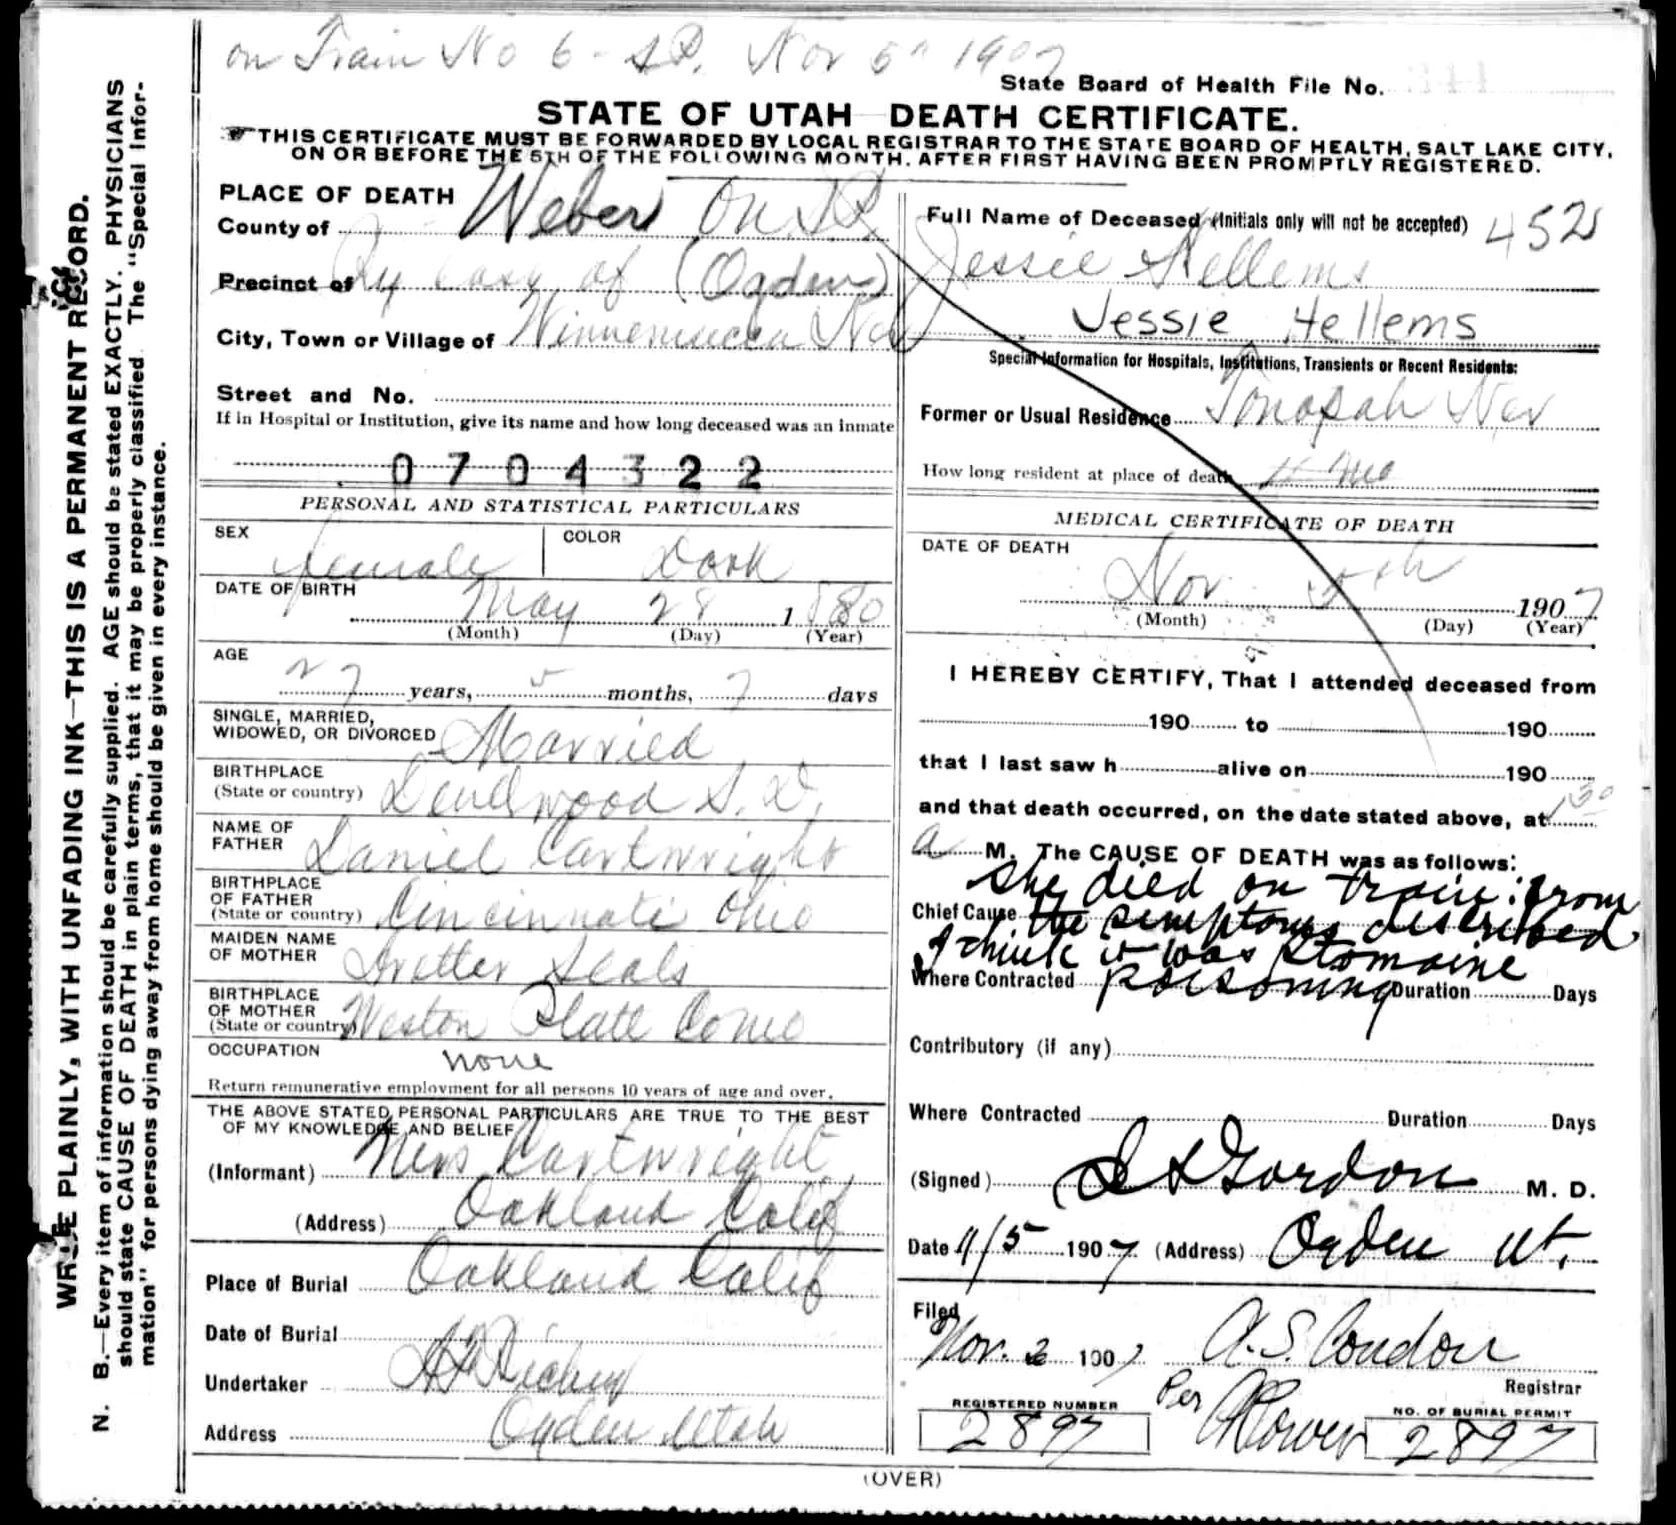 on Train No 6 - S.P. Nov 5th 1907
State Board of Health File No.
STATE OF UTAH DEATH CERTIFICATE.
THIS CERTIFICATE MUST BE FORWARDED BY LOCAL REGISTRAR TO THE STATE BOARD OF HEALTH, SALT LAKE CITY,
ON OR BEFORE THE 5TH OF THE FOLLOWING MONTH, AFTER FIRST HAVING BEEN PROMPTLY REGISTERED.
PLACE OF DEATH
County of Weber On S.P.
Precinct of Ry East of (Ogden)
City, Town or Village of Winnemucca Nev
Street and No.
If in Hospital or Institution, give its name and how long deceased was an inmate
0704322
PERSONAL AND STATISTICAL PARTICULARS
SEX female COLOR Dark
DATE OF BIRTH May 28 1880
(Month) (Day) (Year)
AGE
27 years, 5 months, 7 days
SINGLE, MARRIED,
WIDOWED, OR DIVORCED Married
BIRTHPLACE
(State or country) Deadwood S.D.
NAME OF
FATHER Daniel Cartwright
BIRTHPLACE
OF FATHER
(State or country) Cincinnati Ohio
MAIDEN NAME
OF MOTHER Seals
BIRTHPLACE
OF MOTHER
(State or country) Weston Platt
OCCUPATION none
Return remunerative employment for all persons 10 years of age and over.
THE ABOVE STATED PERSONAL PARTICULARS ARE TRUE TO THE BEST
OF MY KNOWLEDGE AND BELIEF
(Informant) Mrs Cartwright
(Address) Oakland Calif
Place of Burial Oakland Calif
Date of Burial
Undertaker Richey
Address Ogden Utah
Full Name of Deceased (Initials only will not be accepted) 452
Jessie Hellems
Jessie Hellems
Special Information for Hospitals, Institutions, Transients or Recent Residents:
Former or Usual Residence Tonopah Nev
How long resident at place of death
MEDICAL CERTIFICATE OF DEATH
DATE OF DEATH
Nov 5th 1907
(Month) (Day) (Year)
I HEREBY CERTIFY, That I attended deceased from
190 to 190
that I last saw h alive on 190
and that death occurred, on the date stated above, at 1 30
a M. The CAUSE OF DEATH was as follows:
She died on train: from
Chief Cause the symptoms described
I think it was Ptomaine
Where Contracted poisoning Duration Days
Contributory (if any)
Where Contracted Duration Days
(Signed) Gordon M. D.
Date 11/5 1907 (Address) Ogden Ut.
Filed
Nov. 2 1907 A.S. Condon
Registrar
Per
REGISTERED NUMBER
2897
NO. OF BURIAL PERMIT
2897
(OVER)
WRITE PLAINLY, WITH UNFADING INK—THIS IS A PERMANENT RECORD.
N. B.—Every item of information should be carefully supplied. AGE should be stated EXACTLY. PHYSICIANS
should state CAUSE OF DEATH in plain terms, that it may be properly classified. The "Special Infor-
mation" for persons dying away from home should be given in every instance.